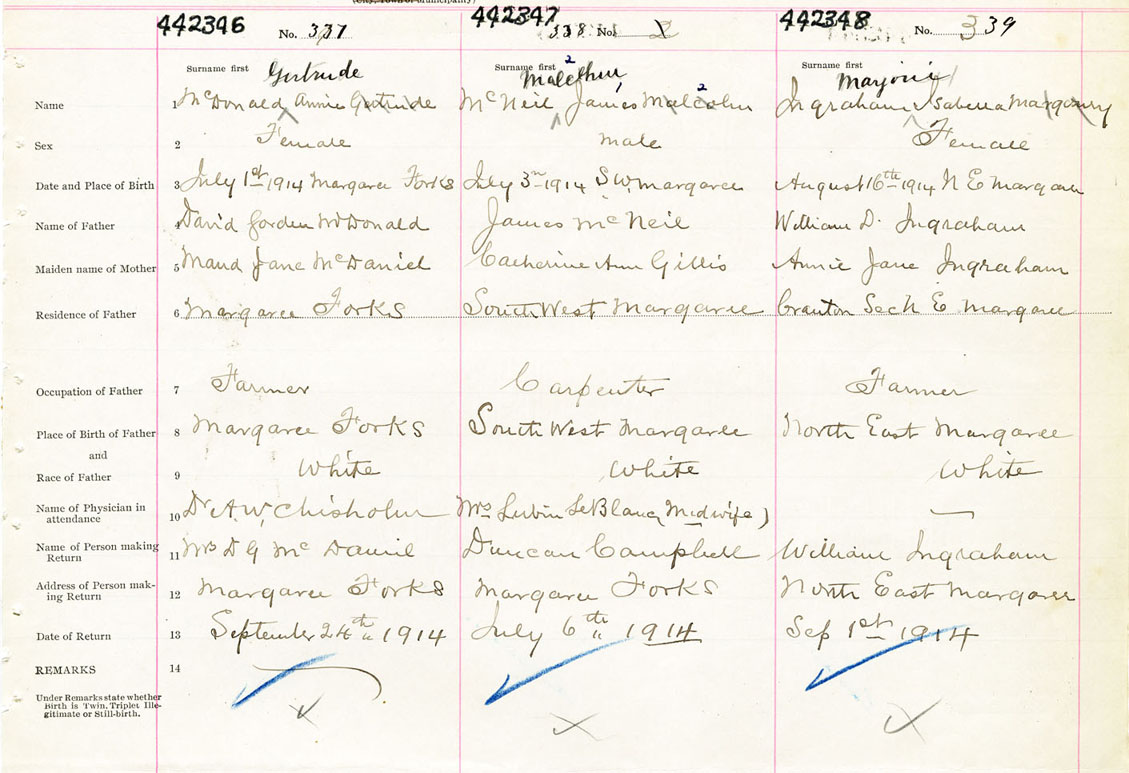 (City, Town or Municipality)
442346 No. 337 442347 338 No. 442348 No. 339
Surname first Gertrude Surname first Surname first Marjorie
Name 1 McDonald Annie Gertrude McNeil James Malcolm Ingraham Isabella
Sex 2 Female male Female
Date and Place of Birth 3 July 1st 1914 Margaree Forks July 3rd 1914 S W. Margaree August 16th 1914 N E Margaree
Name of Father 4 David Gorden McDonald James McNeil William D. Ingraham
Maiden name of Mother 5 Maud Jane McDaniel Catherine Ann Gillis Annie Jane Ingraham
Residence of Father 6 Margaree Forks South West Margaree Cranton Sec N E. Margaree
Occupation of Father 7 Farmer Carpenter Farmer
Place of Birth of Father 8 Margaree Forks South West Margaree North East Margaree
and
Race of Father 9 White White White
Name of Physician in
attendance 10 Dr A. W. Chisholm Mrs Lubin LeBlanc Midwife)
Name of Person making
Return 11 Mrs D G McDaniel Duncan Campbell William Ingraham
Address of Person mak-
ing Return 12 Margaree Forks Margaree Forks North East Margaree
Date of Return 13 September 24th 1914 July 6th 1914 Sep 1st 1914
REMARKS 14
Under Remarks state whether
Birth is Twin, Triplet Ille-
gitimate or Still-birth.